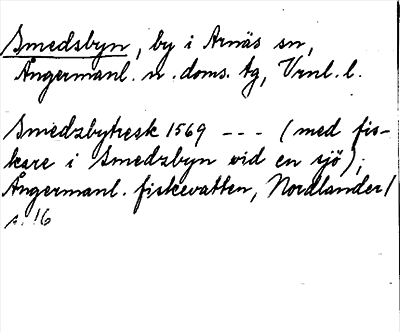 Smedsbyn, by i Arnäs sn,
Ångermanl. n. doms. tg, Vrnl. l.
Smedzbytresk 1569 --- (med fis-
kare i Smedzbyn vid en sjö);
Ångermanl. fiskevatten, Nordlander/
s. 16